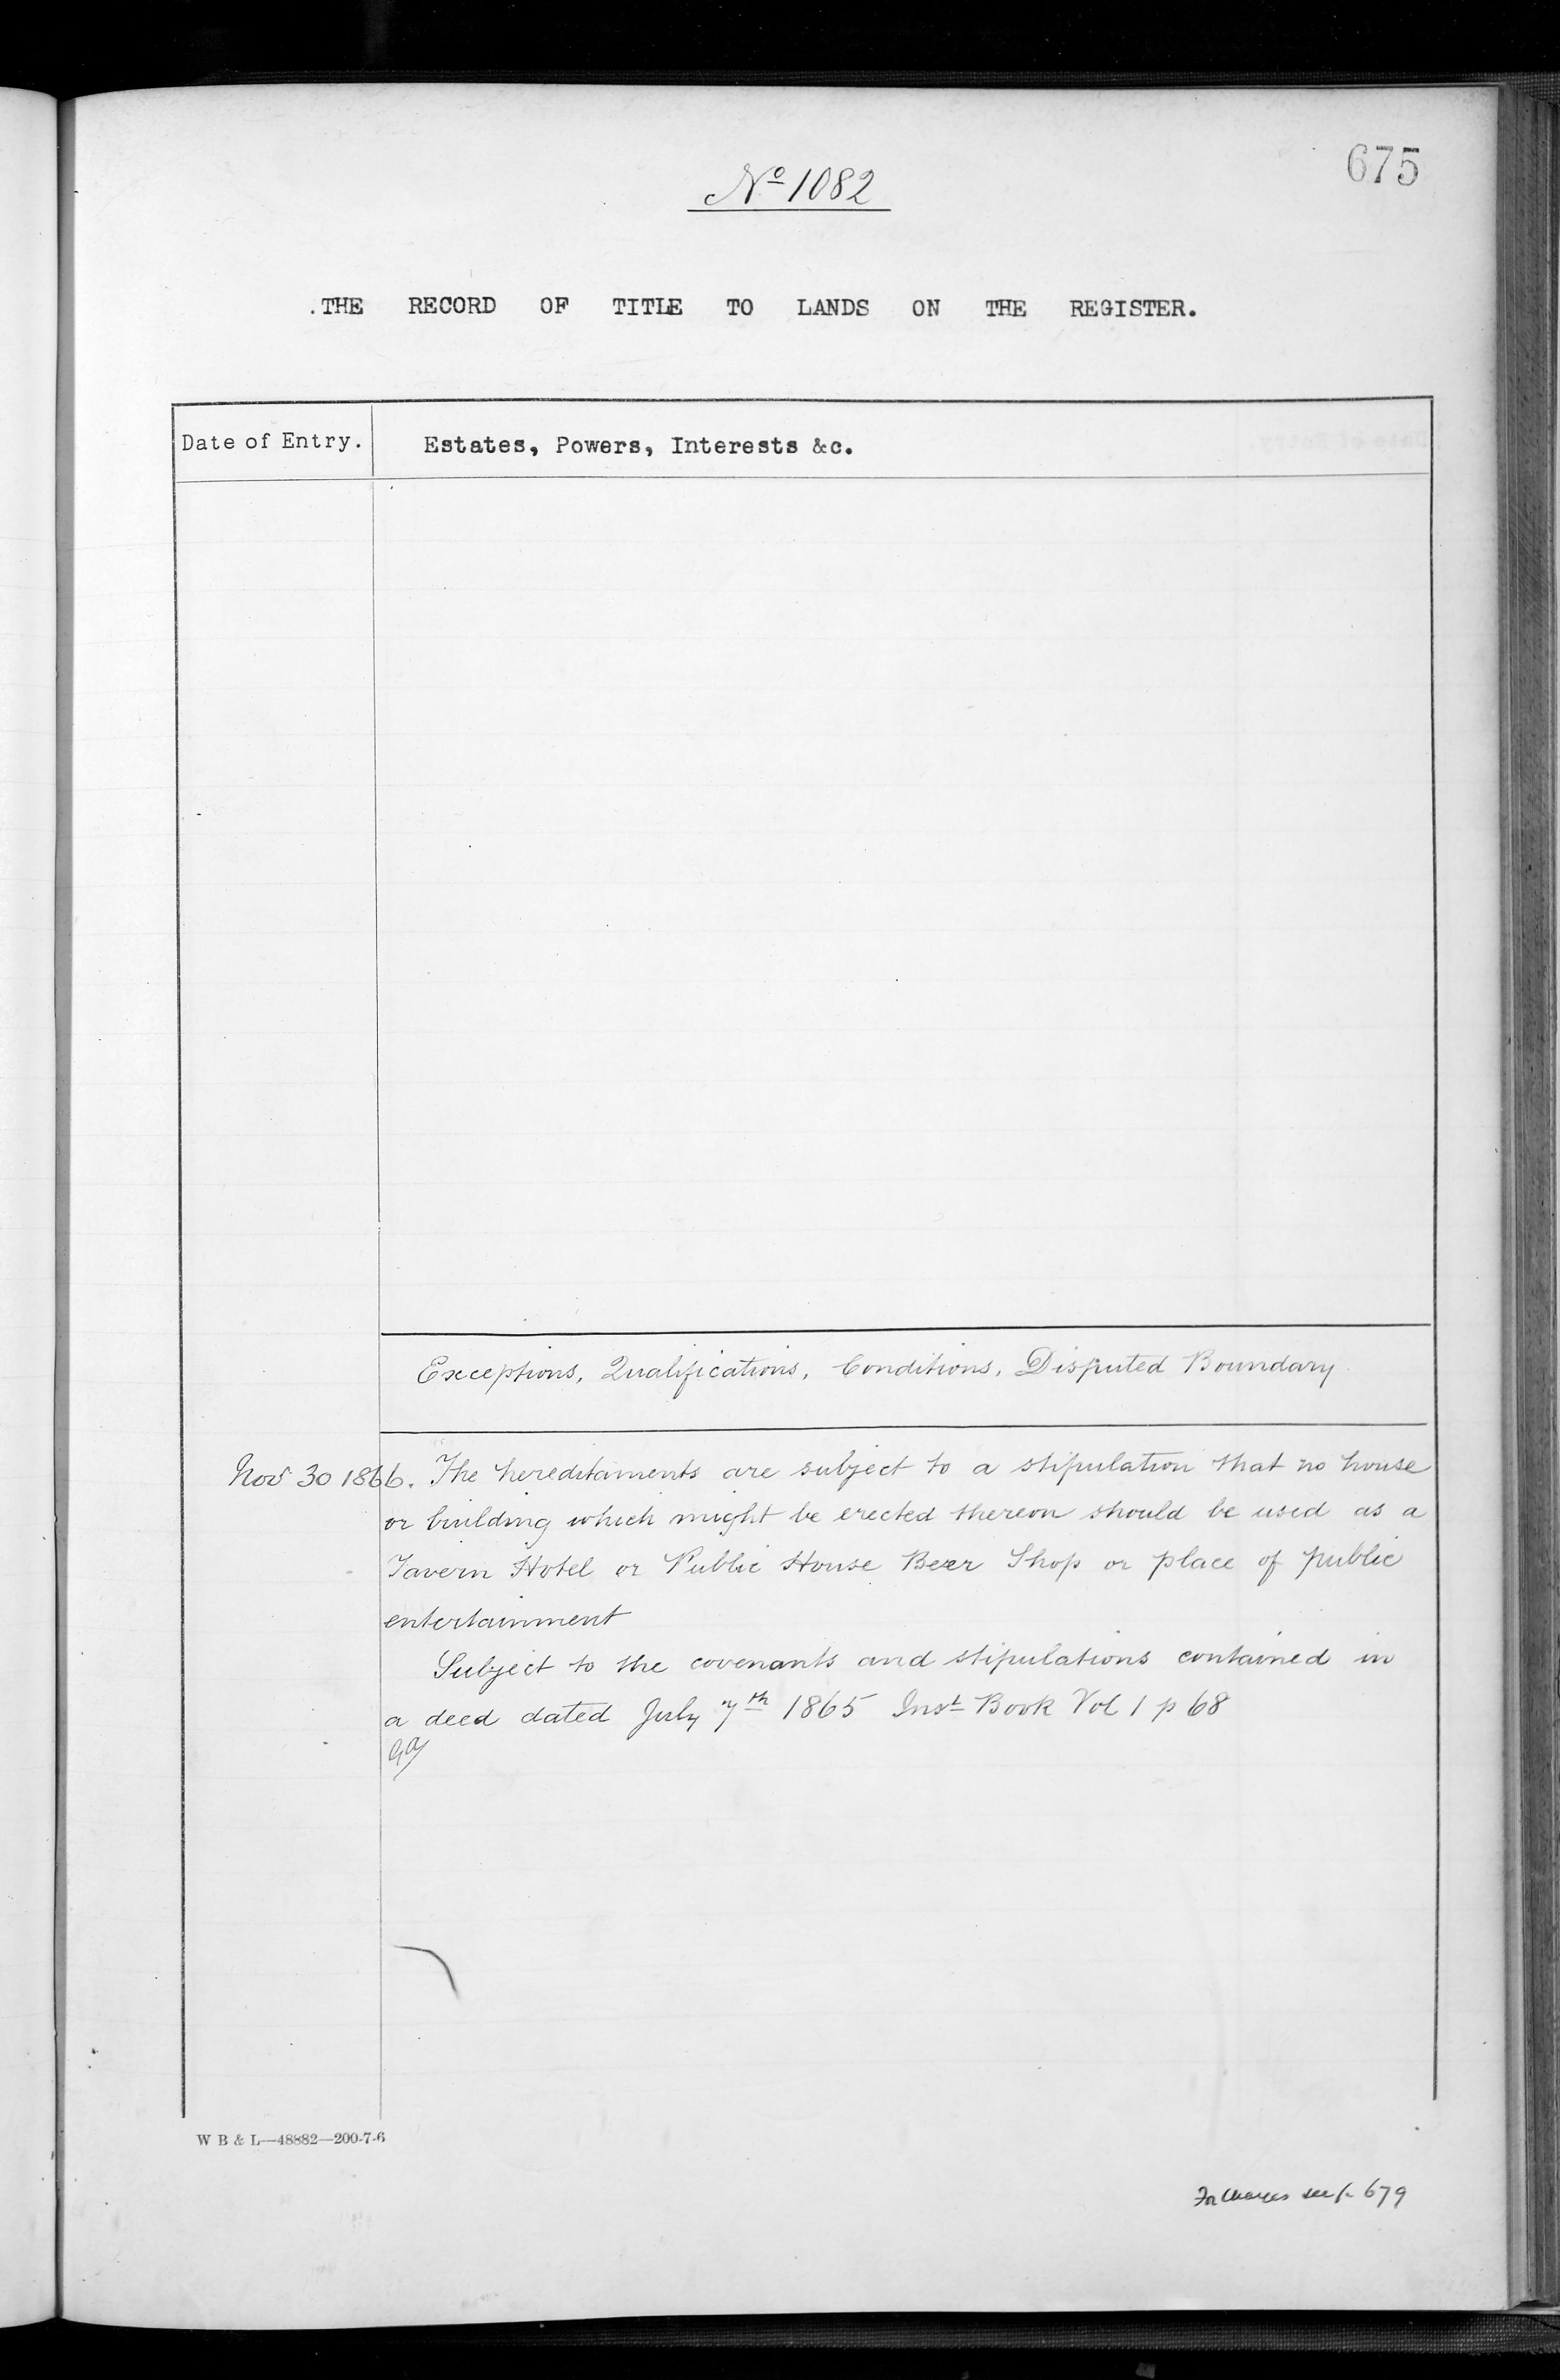 675
Nº 1082
.THE RECORD OF TITLE TO LANDS ON THE REGISTER.
Date of Entry. Estates, Powers, Interests &c.
Exceptions, Qualifications, Conditions, Disputed Boundary
Nov 30 1866. The hereditaments are subject to a stipulation that no house
or building which might be erected thereon should be used as a
Tavern Hotel or Public House Beer Shop or place of public
entertainment
Subject to the covenants and stipulations contained in
a deed dated July 7th 1865 Inst Book Vol 1 p 68
W B & L—48882—200-7-6
For Charges see p. 679